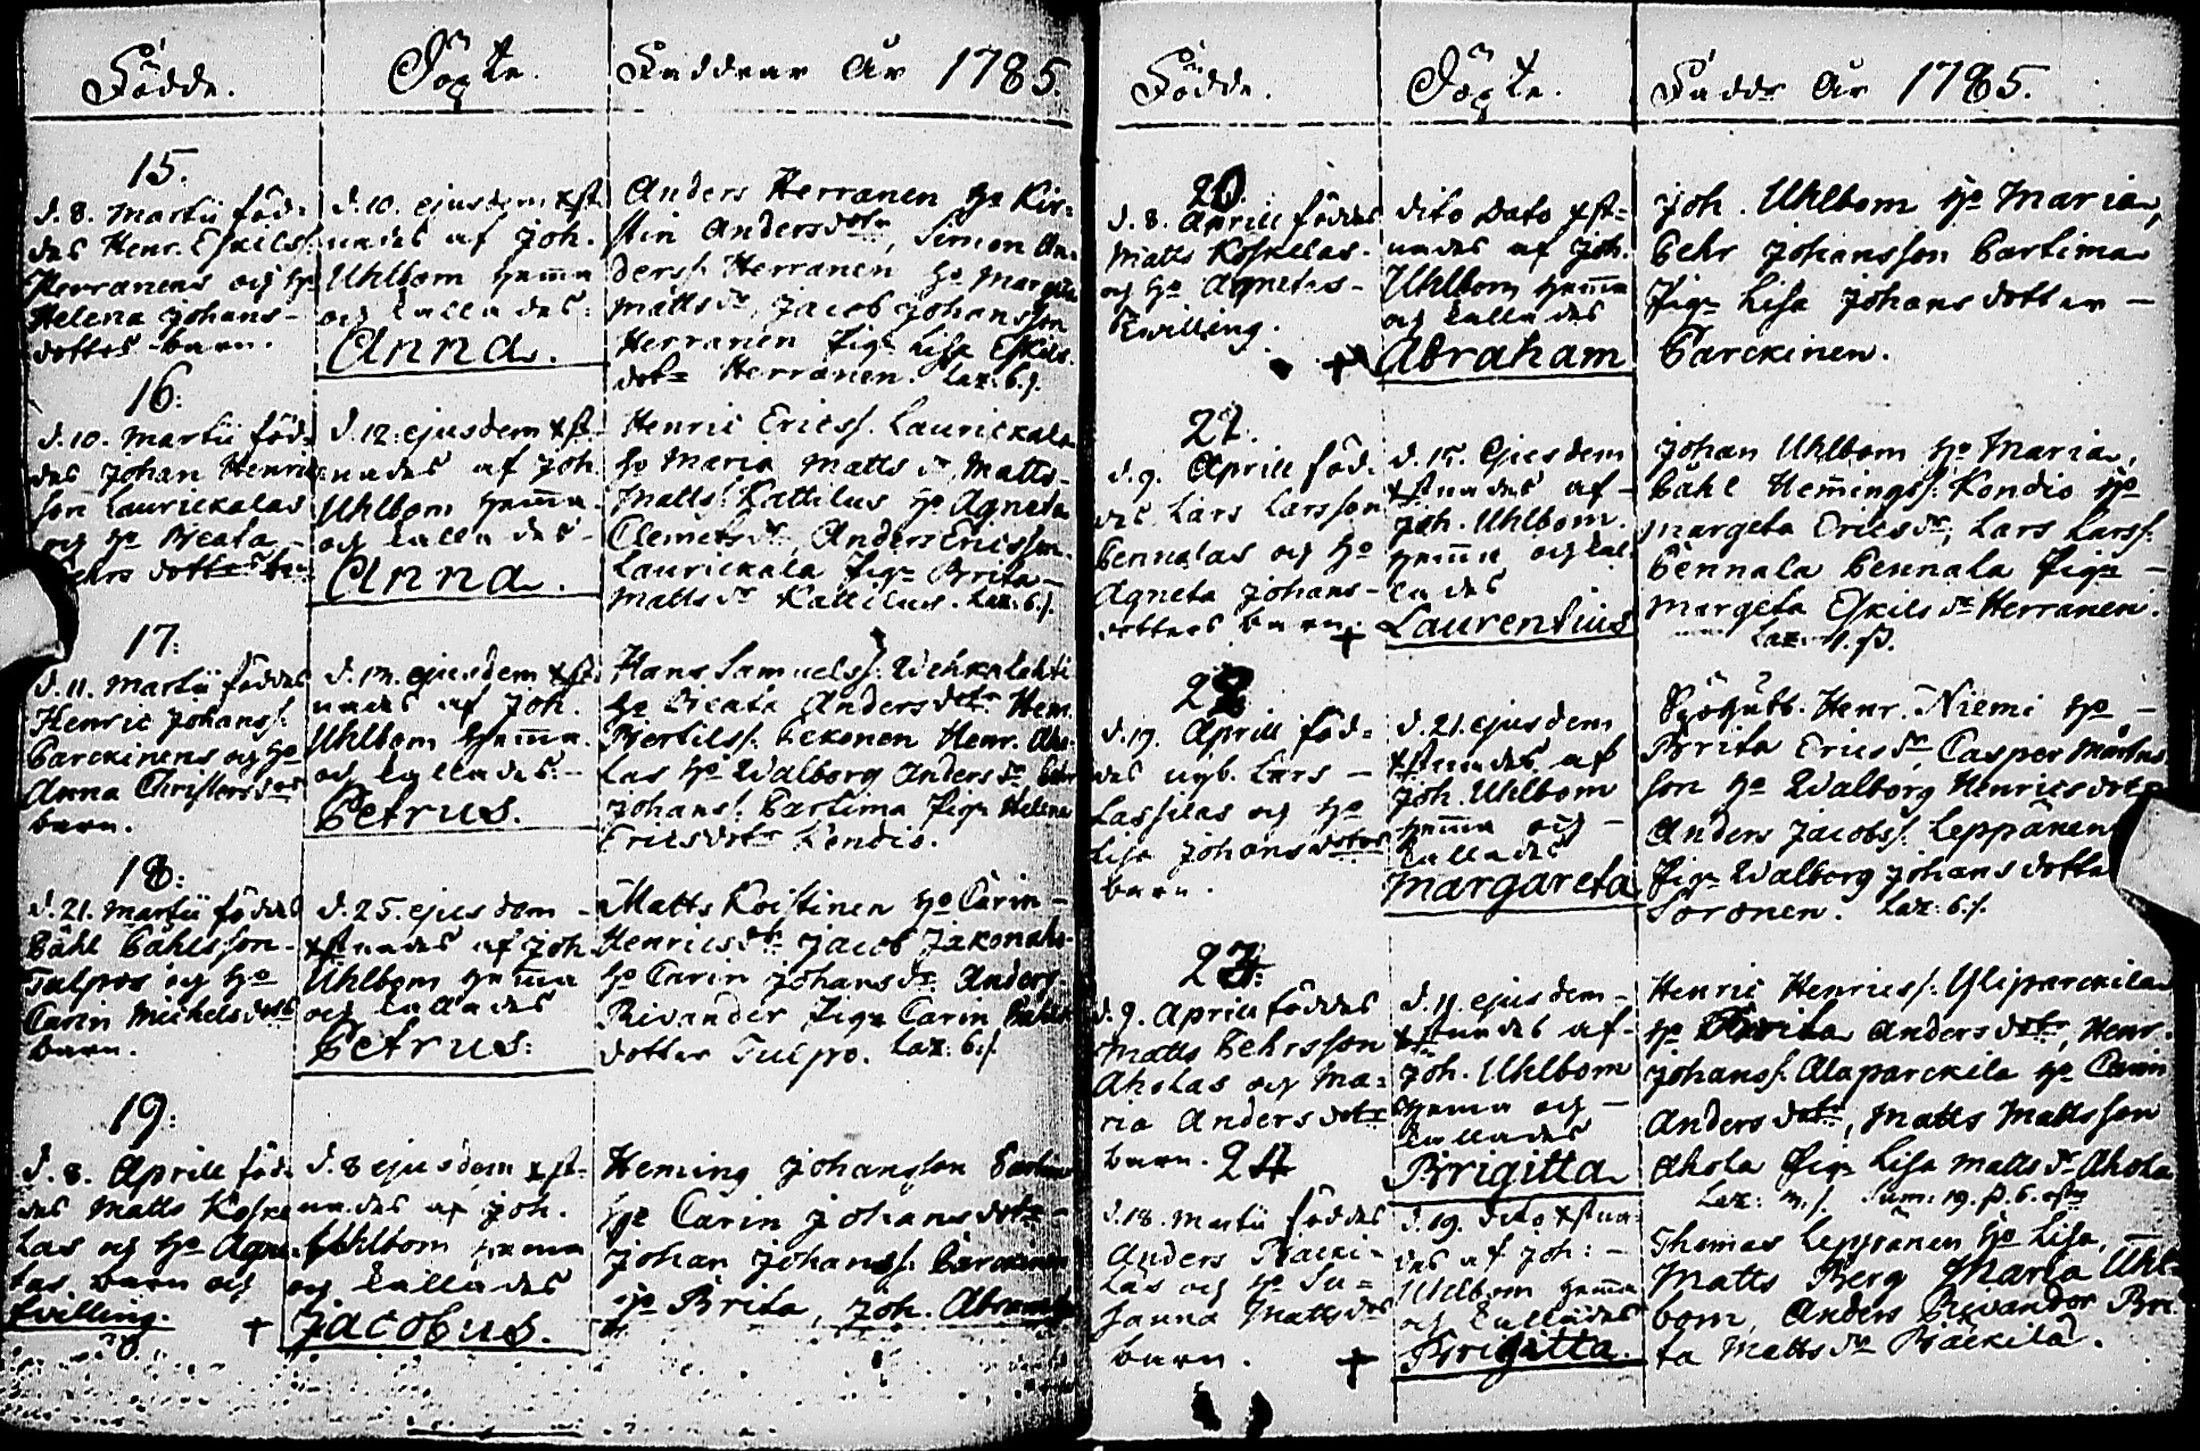 Födde.
Döpte.
Faddrar År 1785.
15.
d. 8. Martii föd=
des Henr. Eskilss.
Herranens och H:o
Helena Johans-
dotters barn.
d. 10. ejusdem xst=
nades af Joh.
Uhlbom hemma
och kallades:
Anna.
Anders Herranen H:o Kir=
stin Andersdotr, Simon An=
derss. Herranen H:o Margeta
Mattsdr, Jacob Johansson
Herranen Pig. Lisa Eskils
dotr Herranen. Lax: 6. s.
16:
d. 10. Martii föd=
des Johan Henric
son Laurickalas
och H:o Beata
Pehrs dotters ba:
d. 12. ejusdem xst=
nades af Joh.
Uhlbom hemma
och kallades-
Anna.
Henric Ericss. Laurickala
H:o Maria Matts dr, Matts
Matts. Kattilus H:o Agneta
Clemetsdr, Anders Ericsson
Laurickala Pig. Brita
Matts dr Kattilus. Lax: 6. s.
17:
d. 11. Martii föddes
Henric Johanss.
Parckinens och H:o
Anna Christersdrs
barn.
ejusdem xst=
nades af Joh.
Uhlbom hemma
och kallades:-
Petrus.
Hans Samuelss: Wehkalahti
H:o Beata Andersdotr Hem.
Bertilss. Pekonen Henr. Aho-
las H:o Walborg Anders dr Pehr
Johans. Partima Pig. Helena
Ericsdotr Kondio.
18:
d. 21. Martii föddes
Påhl Påhlsson
Tulpos och H:o
Carin Michelsdotrs
barn.
d. 25. ejusdem -
xstnades af Joh
Uhlbom hemma
och kallades
Petrus:
Matts Koistinen H:o Carin -
Henricsdtr Jacob Jakonaho
H:o Carin Johansdr Anders
Rivander Pig. Carin Påhls
dotter Tulpo. Lax: 6. s.
19:
d. 8. Aprill föd=
des Matts Koske
las och H:o Agne-
tas barn och
tvilling.
d. 8 ejusdem xst=
nades af Joh.
Uhlbom hemma
och kallades
+ Jacobus.
Heming Johansson
H:o Carin Johansdotr -
Johan Johanss. Parckinen
H:o Brita, Joh.
Födde.
Döpte.
Faddr År 1785.
20.
d. 8. Aprill föddes
Matts Koskelas
och H:o Agnetas -
tvilling.
dito dato xst=
nades af Joh.
Uhlbom hemma
och kallades
+ Abraham
Joh. Uhlbom H:o Maria,
Pehr Johansson Partima
Pig. Lisa Johans dotter -
Parckinen.
21.
d. 9. Aprill föd=
des Lars Larsson
Pennalas och H:o
Agneta Johans-
dotters barn.
d. 15. Ejusdem
xstnades af -
Joh. Uhlbom.
hemma och kal-
lades
+ Laurentius
Johan Uhlbom H:o Maria,
Påhl Hemingss: Kondio H:o
Margeta Ericsdr, Lars Larss.
Pennala Pennala Pig. -
Margeta Eskilsdr Herranen.
22
d. 19. Aprill föd=
des nyb. Lars -
Lassilas och H:o
Lisa Johansdotrs
barn.
d. 21. ejusdem
xstnades af
Joh. Uhlbom
hemma och -
kallades
Margareta
Henr. Niemi H:o -
Brita Ericsdr, Casper Mårtens
son H:o Walborg Henricsdotr
Anders Jacobss. Leppänen
Pig. Walborg Johansdotter
Soronen. Lax: 6. s.
23:
d. 9. Aprill föddes
Matts Pehrsson
Aholas och Ma=
ria Andersdotr
barn.
d. 11. ejusdem -
xstnades af -
Joh. Uhlbom
hemma och -
kallades
Brigitta
Henric Henricss. Yliparckila
H:o Brita Andersdotr, Henr.
Johanss. Alaparckila H:o Carin
Andersdotr, Matts Mattsson
Ahola Pig. Lisa Mattsdr Ahola
24
d. 18. Martii föddes
Anders Räcki-
läs och H:o Su=
sanna Mattsdrs
barn.
d. 19. dito xstna-
des af Joh: -
Uhlbom hemma
och kallades
+ Brigitta.
Thomas Leppänen H:o Lisa,
Matts Berg Maria Uhl-
bom, Anders Rivander Bri-
ta Mattsdr Räckilä.